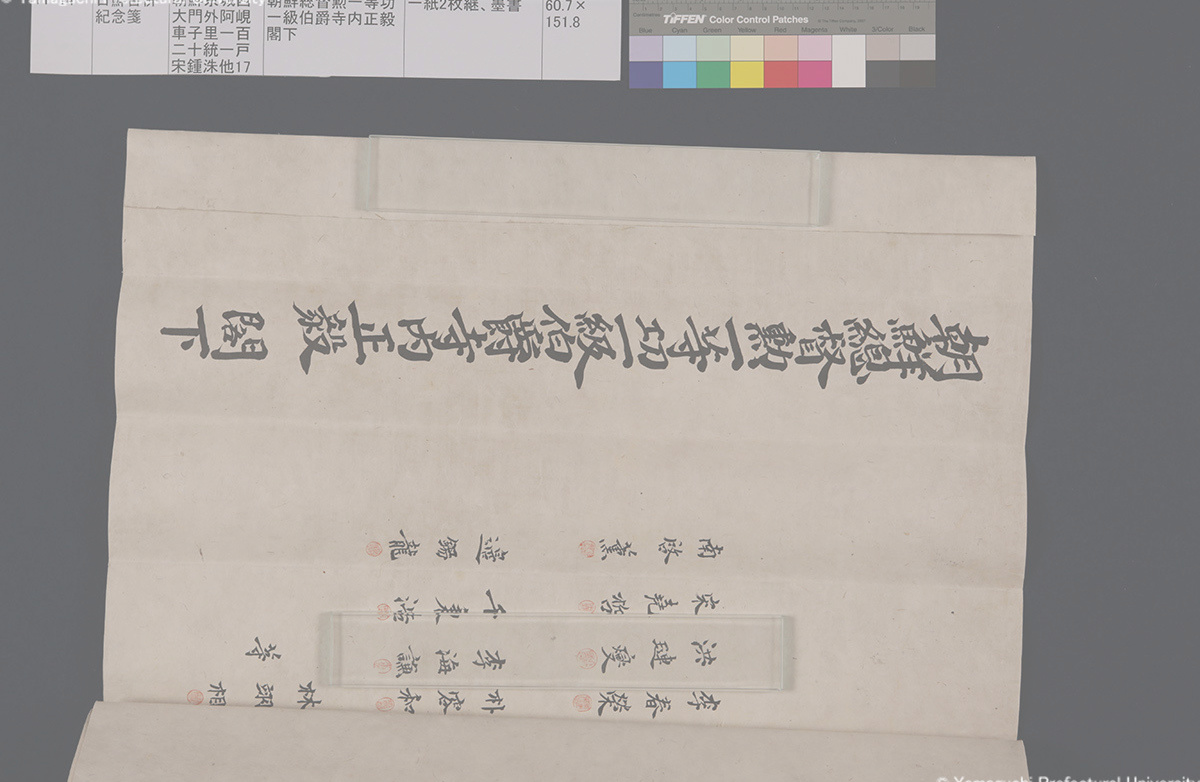 紀念箋
大門外阿峴
車子里一百
二十統一戸
宋鍾洙他17
朝鮮総督勲一等功
一級伯爵寺内正毅
閣下
一紙2枚継、墨書
60.7×
151.8
TIFFEN Color Control Patches
Blue Cyan Green Yellow Red Magenta White 3/Color Black
朝鮮總督勳一等功一級伯爵寺內正毅閣下
南啓薰
宋堯
洪璉燮
李春榮
邊錫龍
千秉浩
李海謙
朴容和
林朝相
等
© Yamaguchi Prefectural University